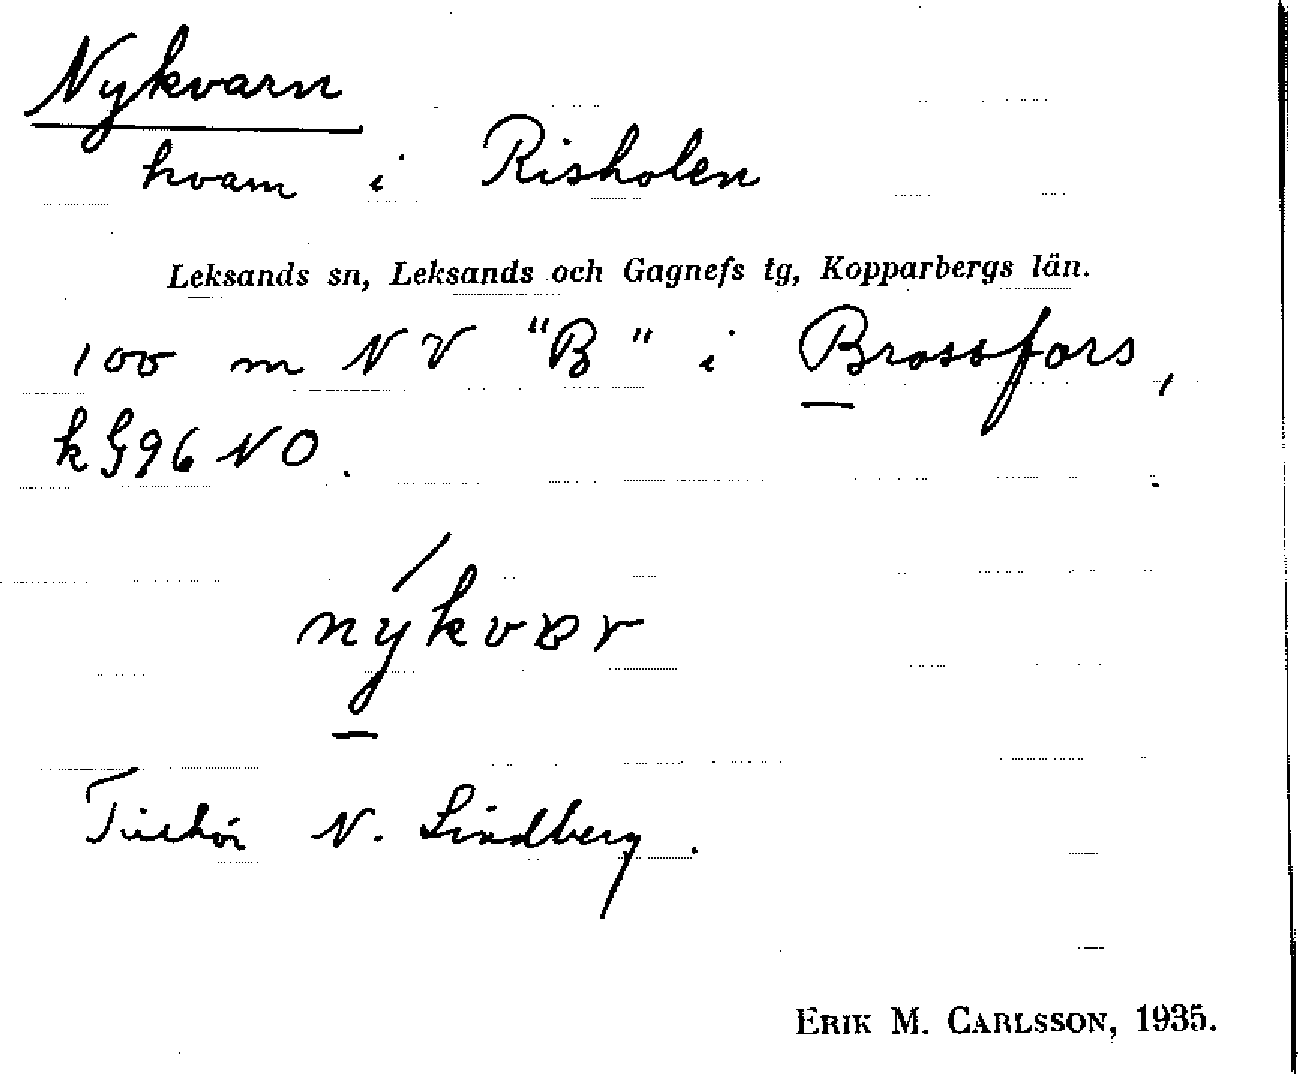 Nykvarn
kvarn i Risholen
Leksands sn, Leksands och Gagnefs tg, Kopparbergs län.
100 m NV "B" i Brossfors,
kG96NO.
nýkvɒr
N. Lindberg.
ERIK M. CARLSSON, 1935.